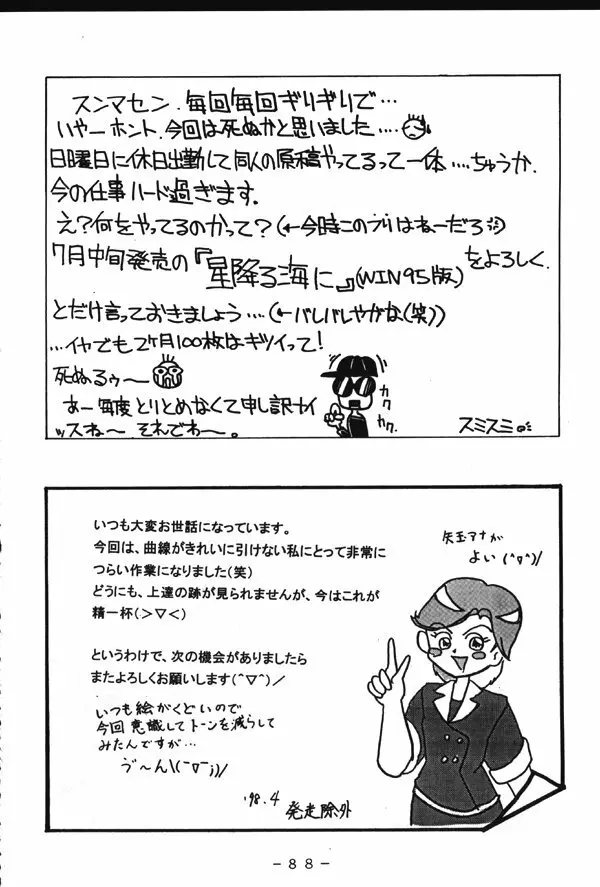 スンマセン.毎回毎回ギリギリで…
いやーホント、今回は死ぬかと思いました….
日曜日に休日出勤して同人の原稿やってるって一体….ちゅうか.
今の仕事ハード過ぎます。
え?何をやってるのかって?(←今時このフリはねーだろ)
7月中旬発売の『星降る海に』(WIN95版)をよろしく.
とだけ言っておきましょう…(←バレバレやがな(笑))
…イヤでも2ヶ月100枚はキツイって!
死ぬるぅ〜
あー毎度とりとめなくて申し訳ナイ
ッスね〜 それでわ〜。
カク
カク.
スミスミ
いつも大変お世話になっています。
今回は、曲線がきれいに引けない私にとって非常に
つらい作業になりました(笑)
どうにも、上達の跡が見られませんが、今はこれが
精一杯(>▽<)
というわけで、次の機会がありましたら
またよろしくお願いします(^▽^)/
いつも絵がくどいので
今回意識してトーンを減らして
みたんですが…
ゔ〜ん\(-▽-;)/
'98.4 発走除外
矢玉アナが
よい(^▽^)/
-88-